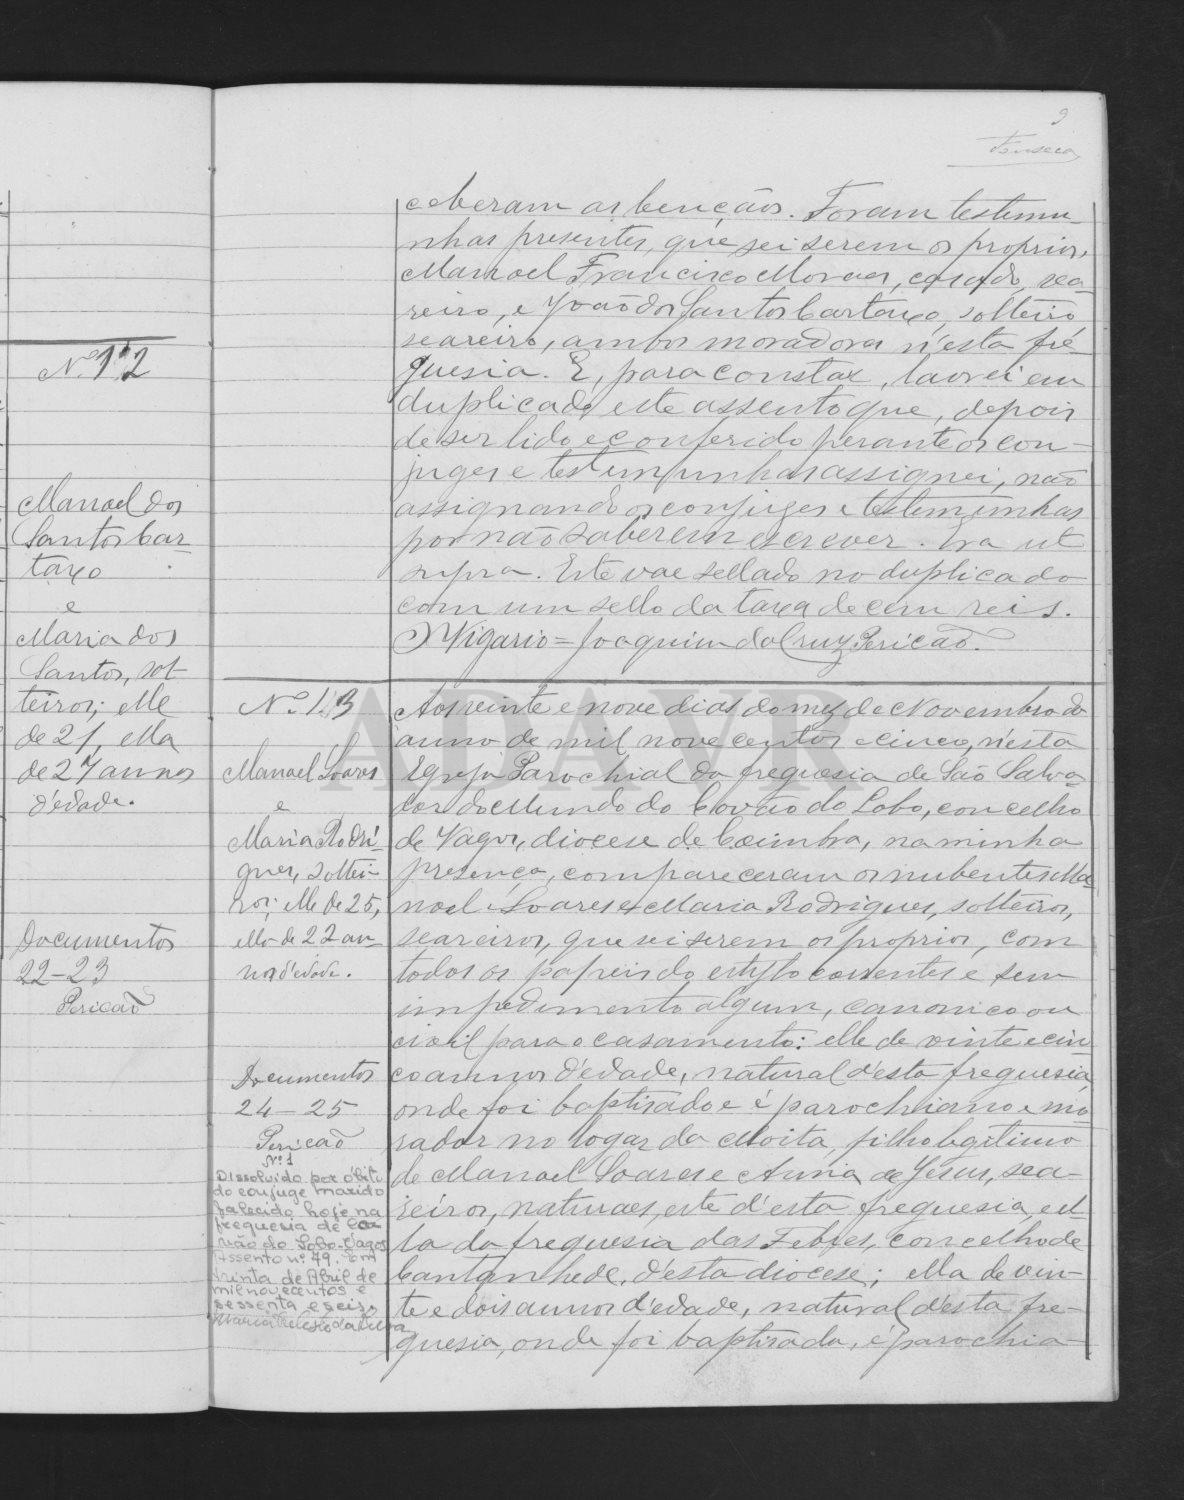 9
Fonseca
Nº 12
Manoel dos
Santos Car-
taxo
e
Maria dos
Santos, sol-
teiros; elle
de 21, ella
de 27 annos
d'edade.
Documentos
22-23
Pericão
ceberam as bençãos. Foram testemu-
nhas presentes, que sei serem os proprios,
Manoel Francisco Moraes, casado, sea-
reiro, e João dos Santos Cartaxo, solteiro
seareiro, ambos moradores n'esta fre-
guesia. E, para constar, lavrei em
duplicado este assento que, depois
de ser lido e conferido perante os con-
juges e testimunhas assignei, não
assignando os conjuges e testimunhas
por não saberem escrever. Era ut
supra. Este vae sellado no duplicado
com um sello da taxa de cem reis.
O Vigario = Joaquim da Cruz Pericão.
Nº 13
Manoel Soares
e
Maria Rodri-
gues, soltei-
ros; elle de 25,
ella de 22 an-
nos d'edade.
Documentos
24-25
Pericão
Nº 1
Dissolvido por óbito
do conjuge marido
falecido hoje na
freguesia de Co-
vão do Lobo-Vagos
Assento nº 79. Em
trinta de Abril de
mil novecentos e
sessenta e seis
Aos vinte e nove dias do mez de Novembro do
anno de mil nove centos e cinco, n'esta
Egreja Parochial da freguesia de São Salva-
dor do Mundo do Covão do Lobo, concelho
de Vagos, diocese de Coimbra, na minha
presença, compareceram os nubentes Ma-
noel Soares e Maria Rodrigues, solteiros,
seareiros, que sei serem os proprios, com
todos os papeis do estylo correntes e sem
impedimento algum, canonico ou
civil para o casamento: elle de vinte e cin-
co annos d'edade, natural d'esta freguesia,
onde foi baptisado e é parochiano e mo-
rador no logar da Moita, filho legitimo
de Manoel Soares e Anna de Jesus, sea-
reiros, naturaes, este d'esta freguesia, el-
la da freguesia das Febres, concelho de
Cantanhede, d'esta diocese; ella de vin-
te e dois annos d'edade, natural d'esta fre-
guesia, onde foi baptisada, é parochia-
ADAVR